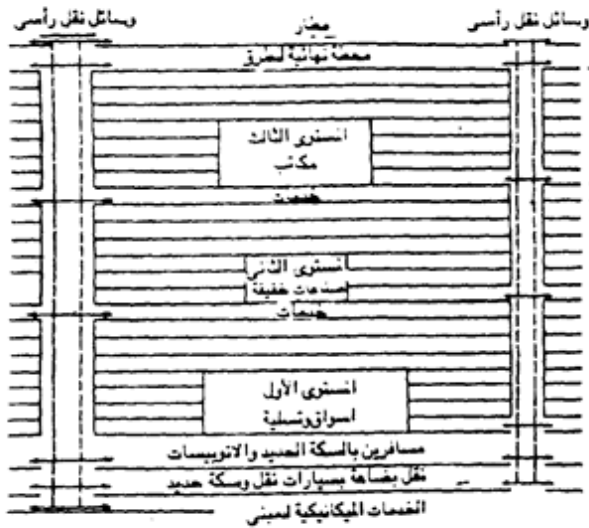 وسائل نقل رأسى
مطار
وسائل نقل رأسى
محطة نهائية لطرق
المستوى الثالث
مكاتب
خدمات
المستوى الثانى
صناعات خفيفة
خدمات
المستوى الأول
اسواق وتسلية
مسافرين بالسكة الحديد والاتوبيسات
نقل بضاعة بسيارات نقل وسكة حديد
الخدمات الميكانيكية لمبنى